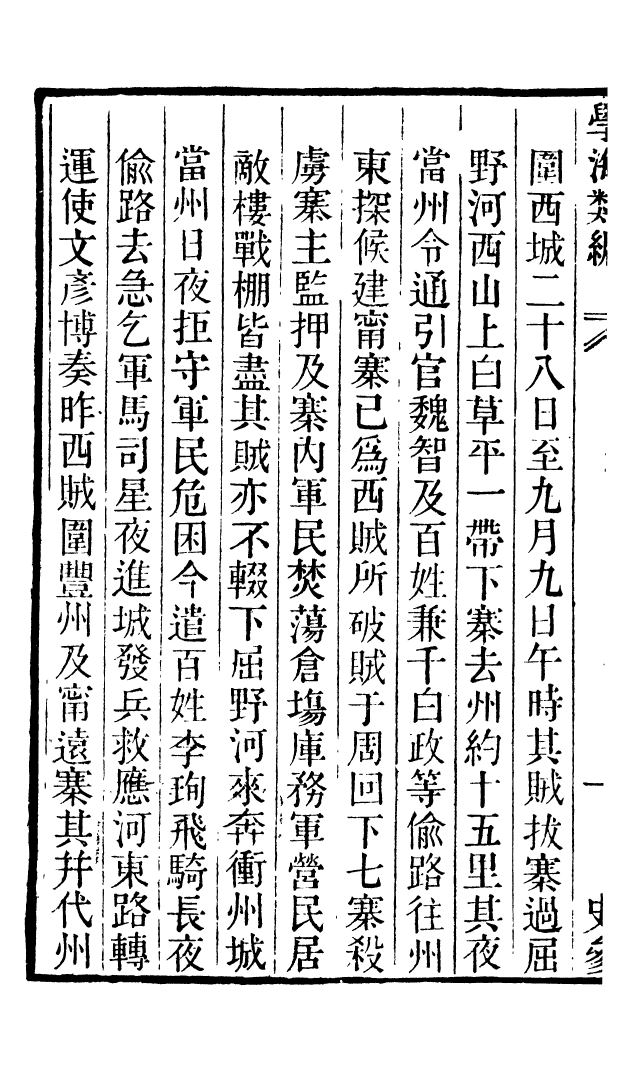 學海類編
一
史參
圍西城二十八日至九月九日午時其賊拔寨過屈
野河西山上白草平一帶下寨去州約十五里其夜
當州令通引官魏智及百姓兼千白政等偷路往州
東探候建甯寨已為西賊所破賊于周回下七寨殺
虜寨主監押及寨內軍民焚蕩倉場庫務軍營民居
敵樓戰棚皆盡其賊亦不輟下屈野河來奔衝州城
當州日夜拒守軍民危困今遣百姓李珣飛騎長夜
偷路去急乞軍馬司星夜進城發兵救應河東路轉
運使文彥博奏昨西賊圍豐州及甯遠寨其幷代州